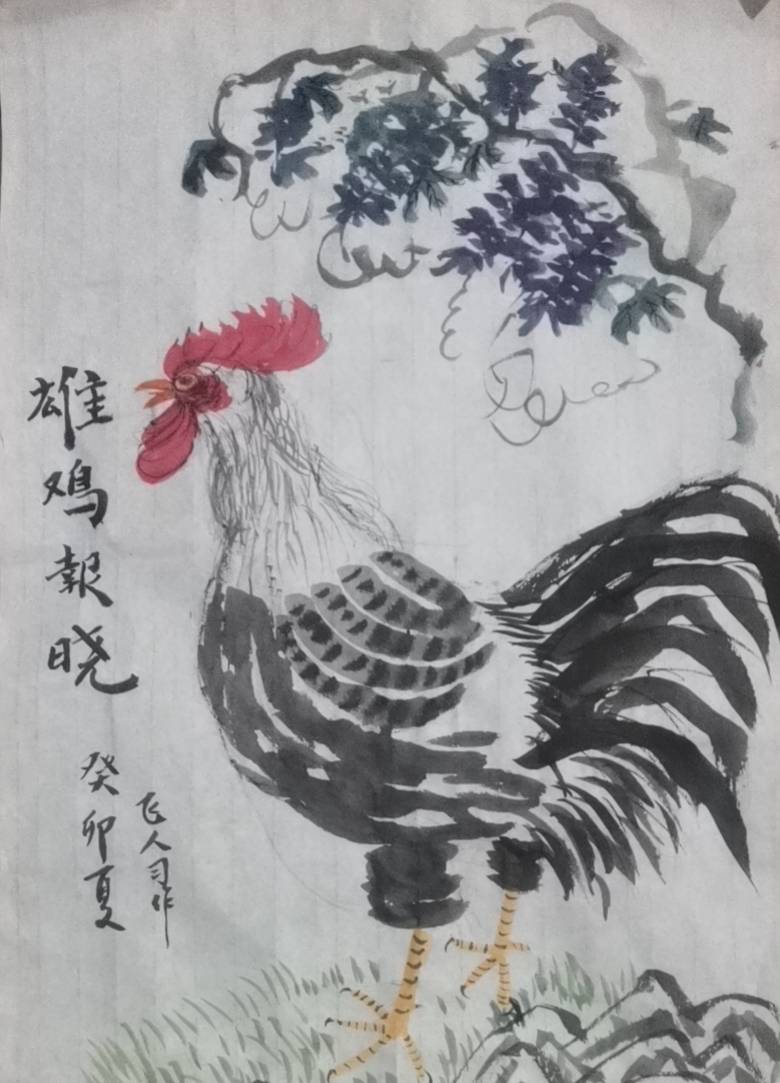 雄鸡報晓
癸卯夏
飞人司作